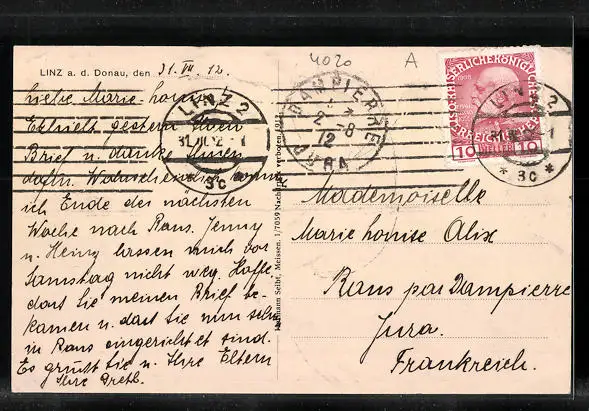 4020
A
LINZ a. d. Donau, den 31. VII. 12.
Liebe Marie-Louise!
Erhielt gestern Ihren
Brief u. danke Ihnen
dafür. Wahrscheinlich komme
ich Ende der nächsten
Woche nach Rans. Jenny
u. Heiny lassen mich vor
Samstag nicht weg. Hoffe,
dass Sie meinen Brief be-
kamen u. dass Sie nun schon
in Rans eingerichtet sind.
Es grüßt Sie u. Ihre Eltern
Ihre Greth.
LINZ 2
31. VII. 12
* 3c *
DAMPIERRE
2-8
12
JURA
KAISERLICHE KÖNIGL
1908
10 HELLER 10
LINZ 2
31. VII. 12
* 3c *
Hermann Seibt, Meissen. 1/7059 Nachdruck verboten 1912
Mademoiselle
Marie Louise Alix
Rans par Dampierre
Jura.
Frankreich.